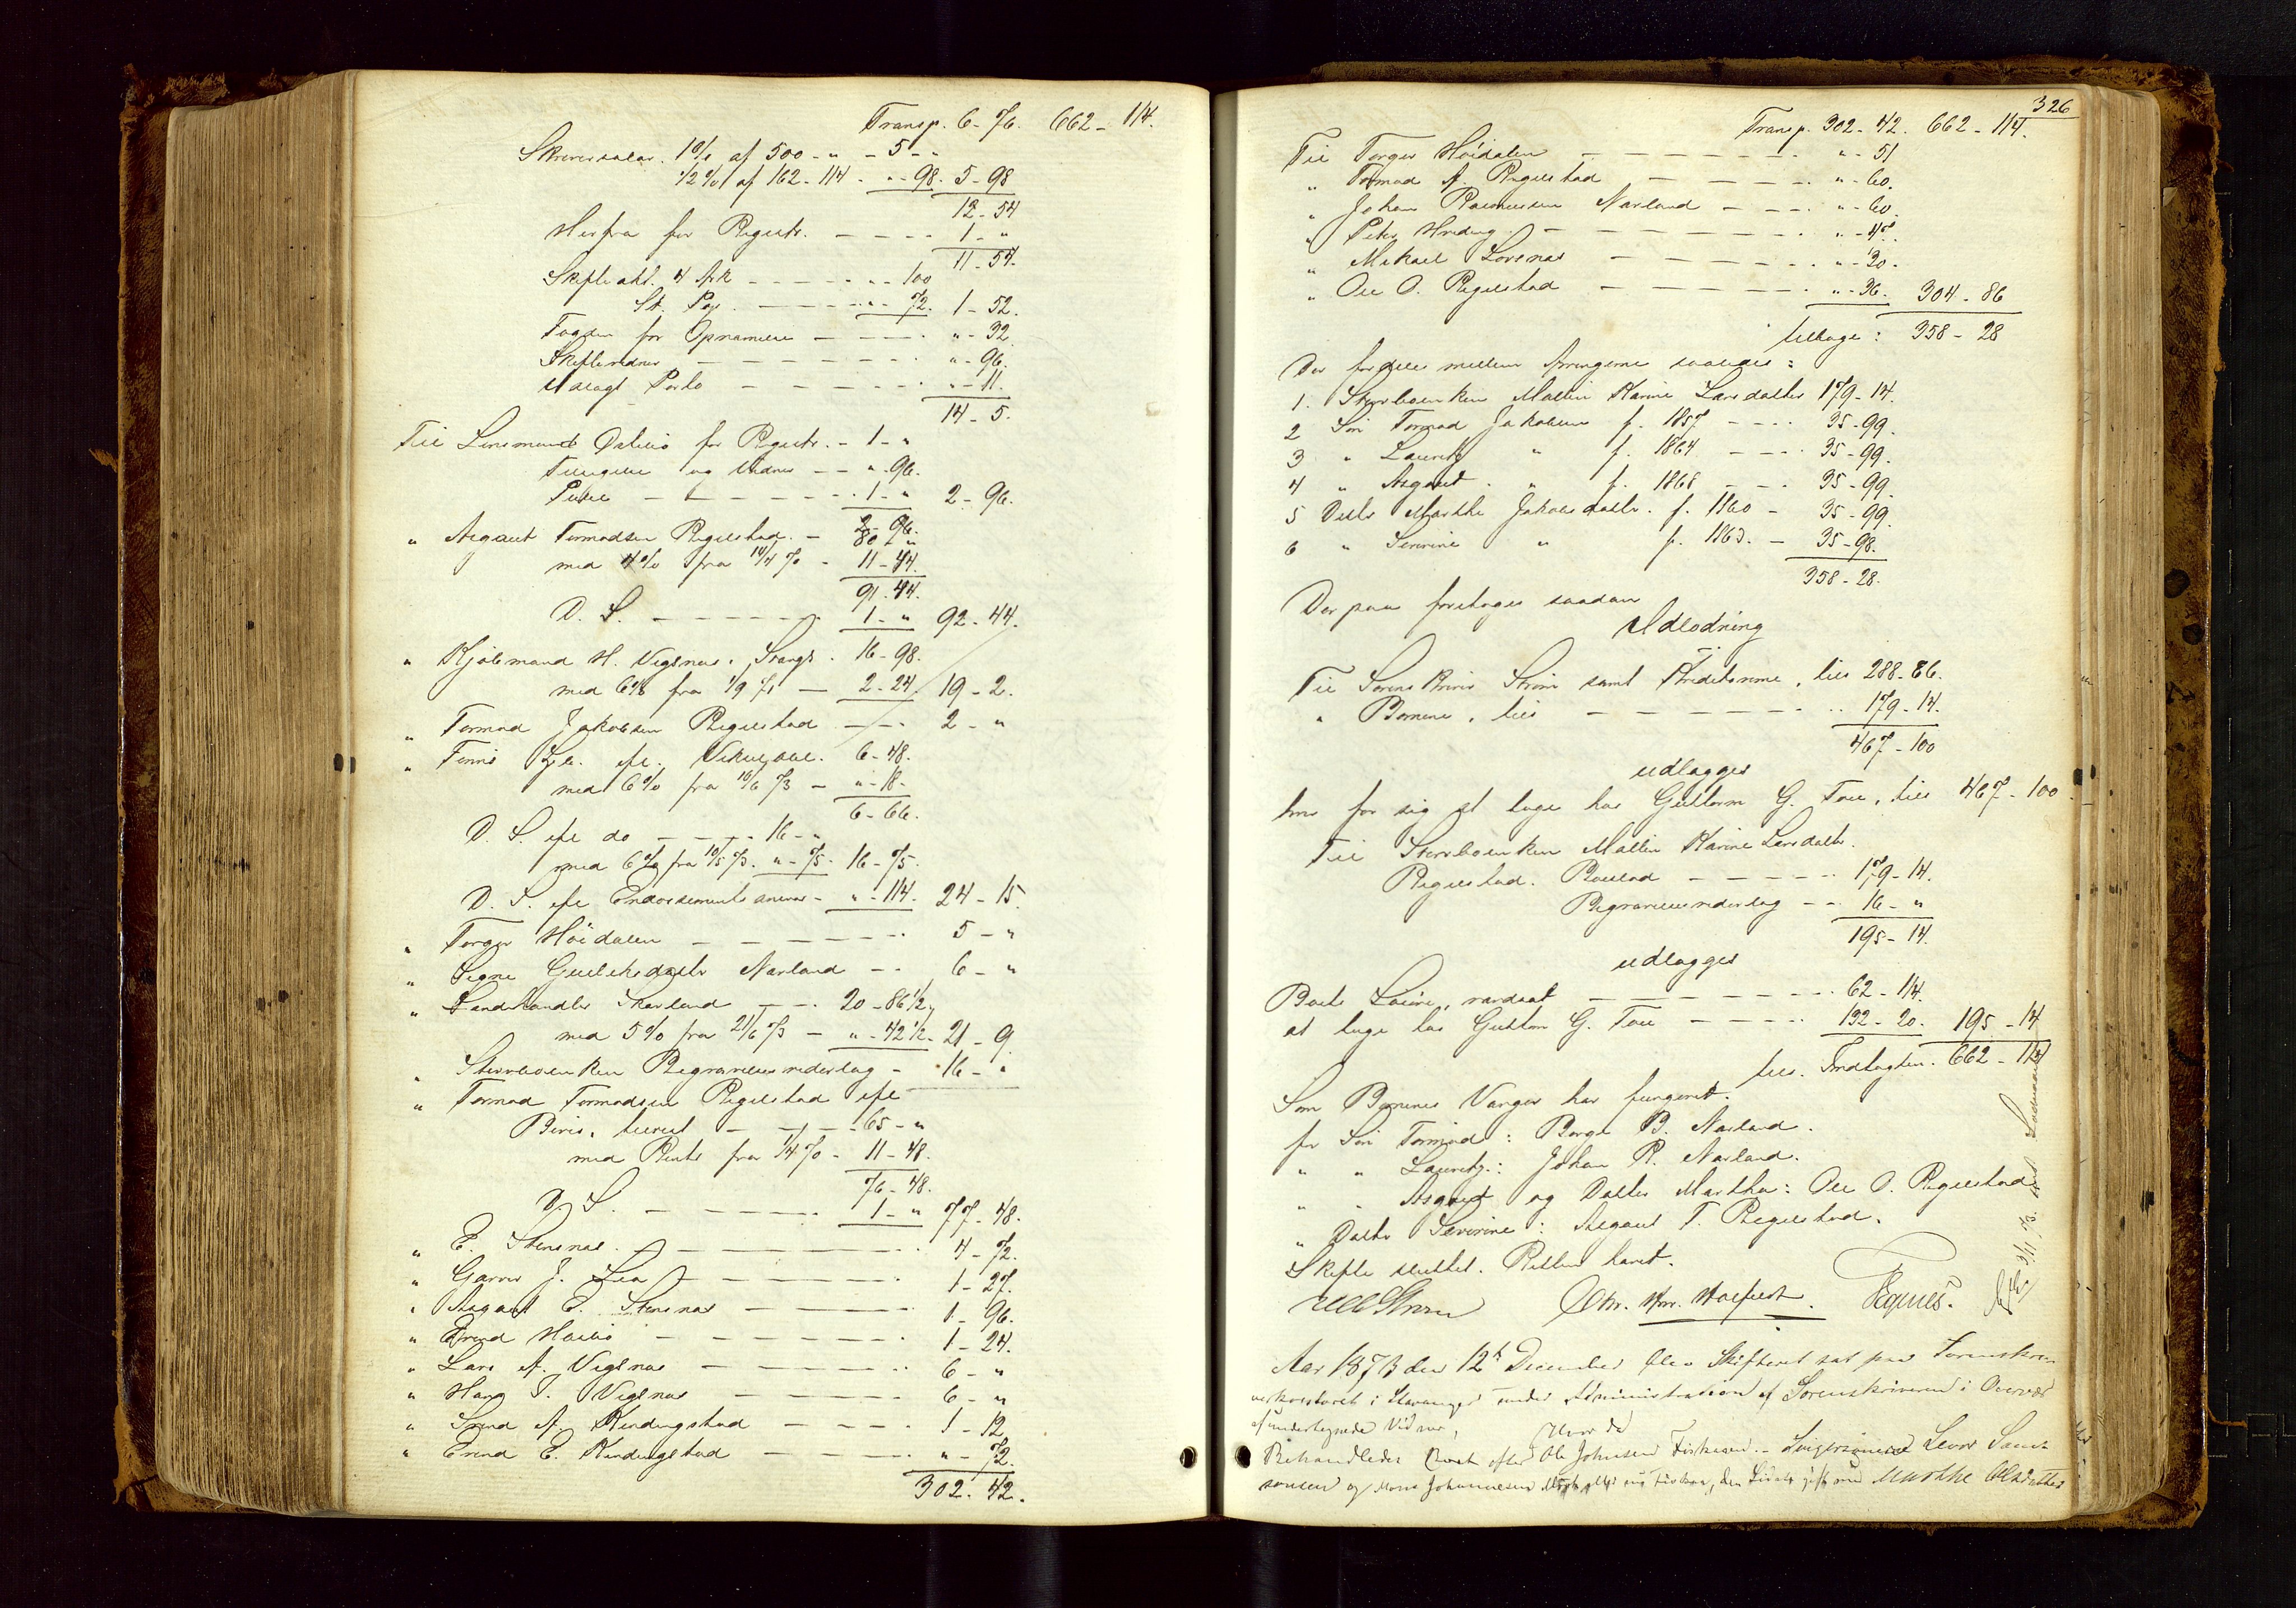 Transp. 6 - 76. 662 - 114.
Skriversalær. 1% af 500 - " - 5 - "
1/2 % af 162 - 114 - " - 98. 5 - 98
12 - 54
Herfra for Registr. - - - - 1 - "
11 - 54.
Skifteakt. 4 Ark - - - - " - 100
St. Pap. - - - - " - 72. 1 - 52.
Fogden for - - - " - 32.
- - - - " - 96.
Udlagt Porto - - - - " - 11.
14 - 5.
Til Lensmand for Registr. - 1 - "
og Vidner - - " - 96.
- - - - 1 - " 2 - 96.
2 - 96.
" Asgaut Tormodsen Regelstad. - 80 - "
med 4% fra 14/4 70 - 11 - 44.
91 - 44.
D. S. - - - - 1 - " 92 - 44.
" Kjøbmand H. Vigsnæs, Stavgr. 16 - 98.
med 6% fra 1/9 71 - 2 - 24. 19 - 2.
" Tormod Jakobsen Regelstad - - 2 - "
" 6 - 48.
med 6% fra 16/6 73 - " - 18.
6 - 66.
D. S. efl do - - - 16 - "
med 6% fra 10/5 73. " - 75. 16 - 75.
D. S. efl - " - 114. 24 - 15.
" Torger Høidalen - - - - 5 - "
" Signe Narland - - 6 - "
" Landhandler Skarland - - 20 - 86 1/2
med 5% fra 21/6 73 - " - 42 1/2. 21 - 9.
" Stervboenken Begravelsesvederlag - 16 - "
" Tormod Tormodsen Regelstad efl
Bevis, - - - 65 - "
med Rente fra 1/4 70 - 11 - 48.
76 - 48.
D. S. - - - - 1 - " 77 - 48.
" E. Stensnæs. - - - - 4 - 72.
" J. Lea - - - - 1 - 27.
" Asgaut E. Stensnæs - - - 1 - 96.
" - - - - 1 - 24.
" Lars A. Vigsnæs - - - - 6 - "
" Hans T. Vigsnæs - - - - 6 - "
" Svend A. Kindingstad - - - 1 - 12.
" E. Kindingstad - - - " - 72.
302 - 42.
326
Transp. 302 - 42. 662 - 114.
Til Torger Høidalen - - - - " - 51
" Tormod A. Regelstad - - - - " - 60.
" Johan Rasmussen Narland - - - " - 60.
" Peter - - - - " - 48.
" Mikael - - - - " - 30.
" Ole O. Regelstad - - - - " - 36. 304 - 86
tilbage: 358 - 28
Der fordeles mellem Arvingerne saaledes:
1. Stervboenken Mallin Karine Larsdatter 179 - 14.
2 Søn Tormod Jakobsen f. 1857 - - - 35 - 99.
3 " Lauritz " f. 1864 - - - 35 - 99.
4 " Asgaut " f. 1868 - - - 35 - 99.
5 Datter Marthe Jakobsdatter f. 1860 - 35 - 99.
6 " Severine " f. 1863. - 35 - 98.
358 - 28.
Derpaa foretoges saadan
Udlodning
Til Sorenskriver Strøm samt Kreditorerne, tils 288 - 86.
" Børnene, tils - - - - 179 - 14.
467 - 100
udlægges
hver for sig at tage hos Guttorm G. Tou, tils 467 - 100.
Til Stervboenken Mallin Karine Larsdatter
Regelstad. Boslod - - - - 179 - 14.
Begravelsesvederlag - - 16 - "
195 - 14.
udlægges
Boets Løsøre, værdsat - - - - 62 - 114.
at tage hos Guttorm G. Tou - - - 132 - 20. 195 - 14
tils. Indtægten. 662 - 114
Som Børnenes Værger har fungeret.
for Søn Tormod: Børge B. Narland.
" " Lauritz: Johan R. Narland.
" " Asgaut og Datter Martha: Ole O. Regelstad
" Datter Severine: Asgaut T. Regelstad.
Skifte sluttet. Retten hævet.
Strøm Chr. Tegnes.
Aar 1873 den 12te December blev Skifteret sat paa Sorenskri-
verkontoret i Stavanger under Administration af Sorenskriveren i Overvær
af undertegnede Vidner, Hvor da
Behandledes Boet efter Ole Johnsen Fiskaaen. - Svigersønnerne
og Johannesen gift med Marthe Olsdatter